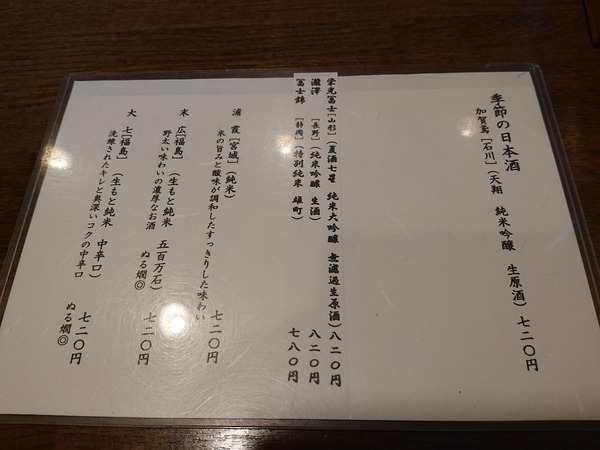 季節の日本酒
加賀鳶[石川](天翔 純米吟醸 生原酒) 七二〇円
栄光冨士[山形](夏酒七星 純米大吟醸 無濾過生原酒) 八二〇円
瀧澤 [長野](純米吟醸 生酒) 八二〇円
冨士錦 [静岡](特別純米 雄町) 七八〇円
浦霞[宮城](純米) 七二〇円
米の旨みと酸味が調和したすっきりした味わい
末廣[福島](生もと純米 五百万石) 七二〇円
野太い味わいの濃厚なお酒 ぬる燗◎
大七[福島](生もと純米 中辛口) 七二〇円
洗練されたキレと奥深いコクの中辛口 ぬる燗◎